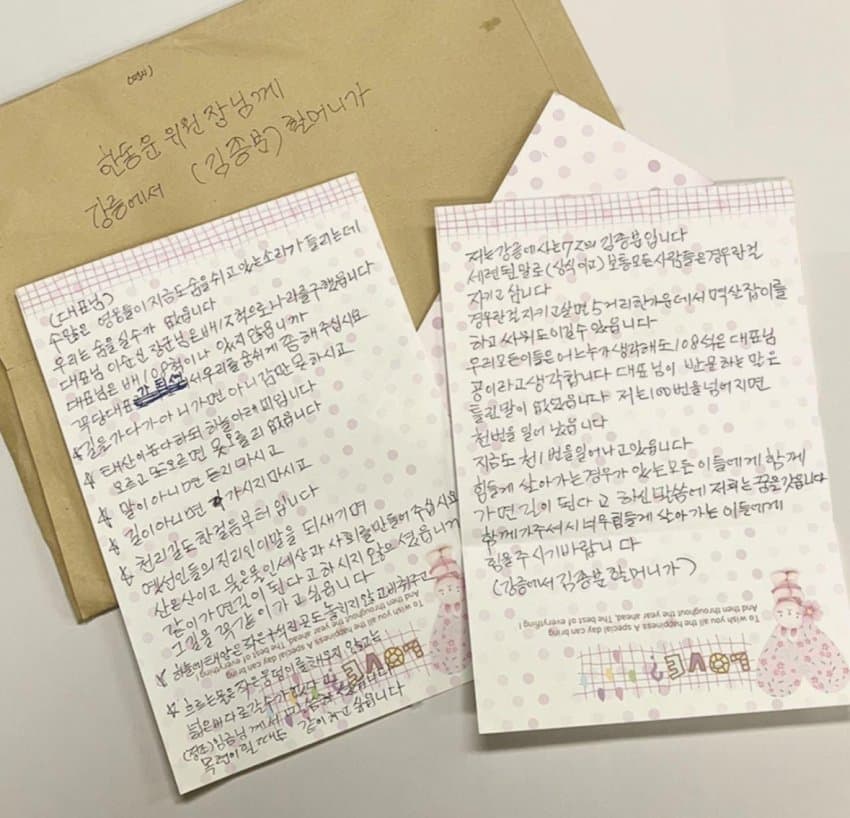 한동훈 위원장님께
강릉에서 (김종분) 할머니가
(대표님)
수많은 영웅들이 지금도 숨을쉬고 있는소리가 들리는데
우리는 숨을 쉴수가 없습니다
대표님 이순신 장군님은배12척으로나라를구했습니다
대표님은 배108척이나 있지 않습니까
서우리를 숨쉬게 좀해주십시요
길을가다가아니가면아니감만못하시고
태산이높다하되 하늘아래 뫼입니다
오르고 또오르면 못오를리 없습니다
말이아니면 듣지마시고
길이아니면 가시지마시고
천리길도한걸음부터 입니다
옛선인들의진리인이말을 되새기며
산은산이고 물은물인세상과 사회를만들어주십시요
같이가면길이된다고하시지 않으셨습니까
그길을 꼭같이가고싶습니다
하늘에태양은작은구석진곳도놓치지않고비춰주고
흐르는물은작은웅덩이를채우지않고는
넓은바다로
(정조)임금님께서
같이하고싶습니다
To wish you all the happiness A special day can bring
And then throughout the year ahead, The best of everything !
LOVE?
저는강릉에사는72세김종분입니다
세련된말로(상식이고)보통모든사람들은경우란걸
지키고삽니다
경우란걸지키고살면5거리한가운데서멱살잡이를
하고싸워도이길수있습니다
우리모든이들은어느누가생각해도108석은대표님
공이라고생각합니다 대표님이 반문하는말은
틀린말이없었습니다 저는100번을넘어지면
천번을일어났습니다
지금도천1번을일어나고있습니다
힘들게살아가는경우가있는모든이들에게함께
가면길이된다고하신말씀에저희는꿈을갖습니다
함께가주셔서너무힘들게살아가는이들에게
힘을주시기바랍니다
(강릉에서김종분할머니가)
To wish you all the happiness A special day can bring
And then throughout the year ahead, The best of everything !
LOVE?